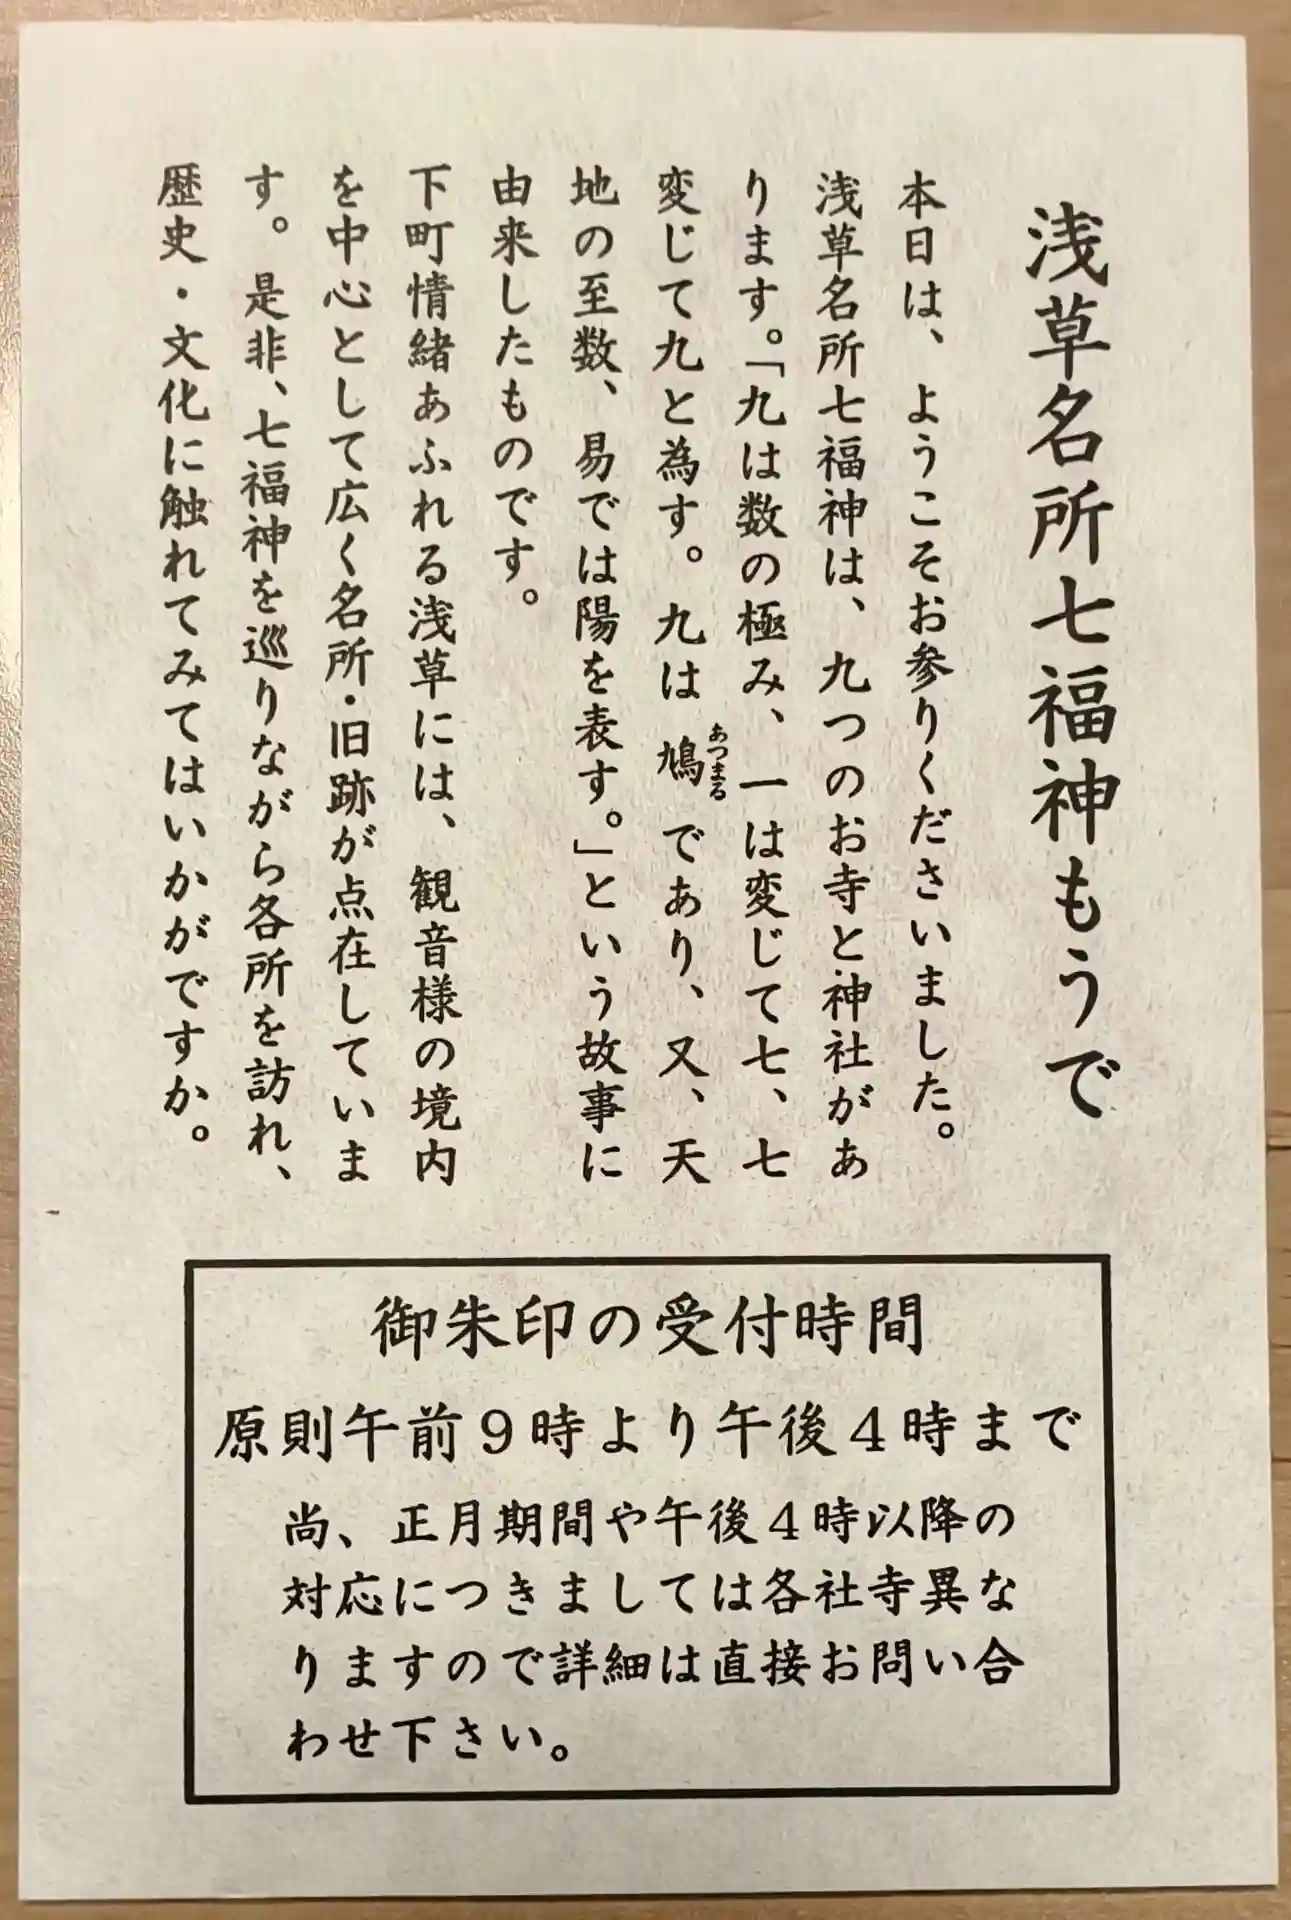 浅草名所七福神もうで
本日は、ようこそお参りくださいました。
浅草名所七福神は、九つのお寺と神社があ
ります。「九は数の極み、一は変じて七、七
変じて九と為す。九は鳩であり、又、天
あつまる
地の至数、易では陽を表す。」という故事に
由来したものです。
下町情緒あふれる浅草には、観音様の境内
を中心として広く名所・旧跡が点在していま
す。是非、七福神を巡りながら各所を訪れ、
歴史・文化に触れてみてはいかがですか。
御朱印の受付時間
原則午前９時より午後４時まで
尚、正月期間や午後４時以降の
対応につきましては各社寺異な
りますので詳細は直接お問い合
わせ下さい。